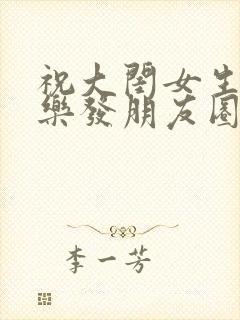 祝大閨女生
樂發朋友圈
李一芳